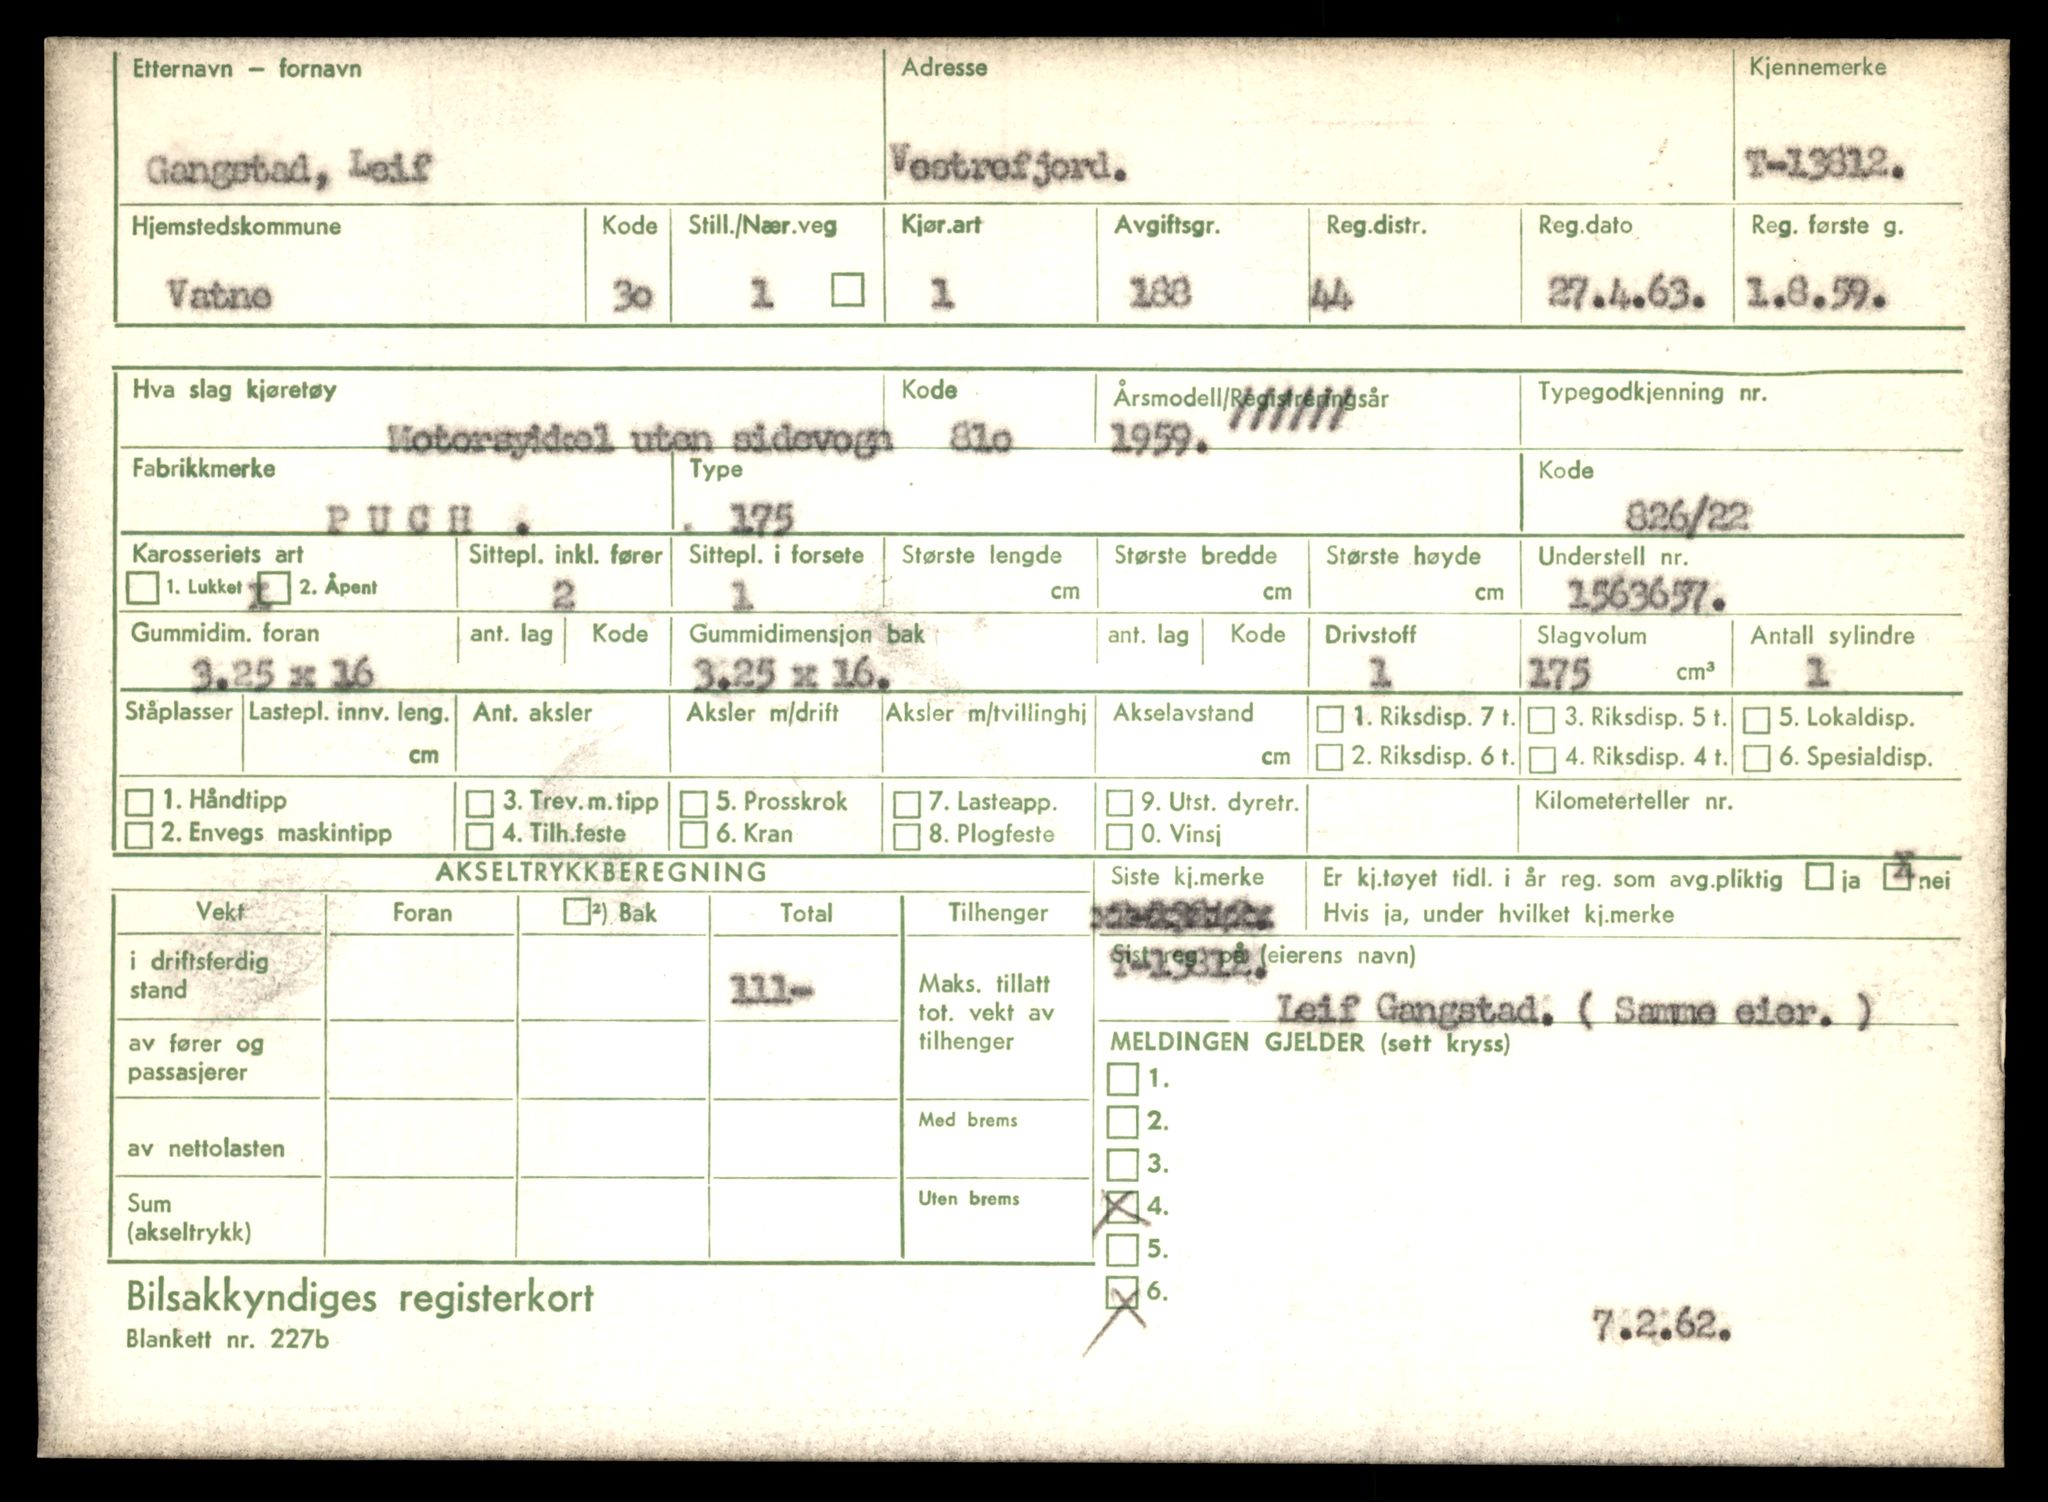 Etternavn – fornavn Adresse Kjennemerke
Gangstad, Leif Vestrefjord. T-13812.
Hjemstedskommune Kode Still./Nær.veg Kjør.art Avgiftsgr. Reg.distr. Reg.dato Reg. første g.
Vatne 3o 1 1 188 44 27.4.63. 1.8.59.
Hva slag kjøretøy Kode Årsmodell/Registreringsår Typegodkjenning nr.
Motorsykkel uten sidevogn 81o 1959.
Fabrikkmerke Type Kode
P U C H . 175 826/22
Karosseriets art Sittepl. inkl. fører Sittepl. i forsete Største lengde Største bredde Største høyde Understell nr.
1. Lukket 2. Åpent 2 1 cm cm cm 1563657.
Gummidim. foran ant. lag Kode Gummidimensjon bak ant. lag Kode Drivstoff Slagvolum Antall sylindre
3.25 x 16 3.25 x 16. 1 175 cm³ 1
Ståplasser Lastepl. innv. leng. Ant. aksler Aksler m/drift Aksler m/tvillinghj Akselavstand 1. Riksdisp. 7 t. 3. Riksdisp. 5 t. 5. Lokaldisp.
cm cm 2. Riksdisp. 6 t. 4. Riksdisp. 4 t. 6. Spesialdisp.
1. Håndtipp 3. Trev.m.tipp 5. Prosskrok 7. Lasteapp. 9. Utst. dyretr. Kilometerteller nr.
2. Envegs maskintipp 4. Tilh.feste 6. Kran 8. Plogfeste 0. Vinsj
AKSELTRYKKBEREGNING Siste kj.merke Er kj.tøyet tidl. i år reg. som avg.pliktig ja x nei
Vekt Foran ²) Bak Total Tilhenger Hvis ja, under hvilket kj.merke
i driftsferdig stand 111- Maks. tillatt tot. vekt av tilhenger
Sist reg. på (eierens navn)
T-13812.
Leif Gangstad. ( Samme eier. )
av fører og passasjerer
MELDINGEN GJELDER (sett kryss)
1.
av nettolasten Med brems
2.
3.
Sum (akseltrykk) Uten brems
4.
5.
6.
Bilsakkyndiges registerkort
7.2.62.
Blankett nr. 227b